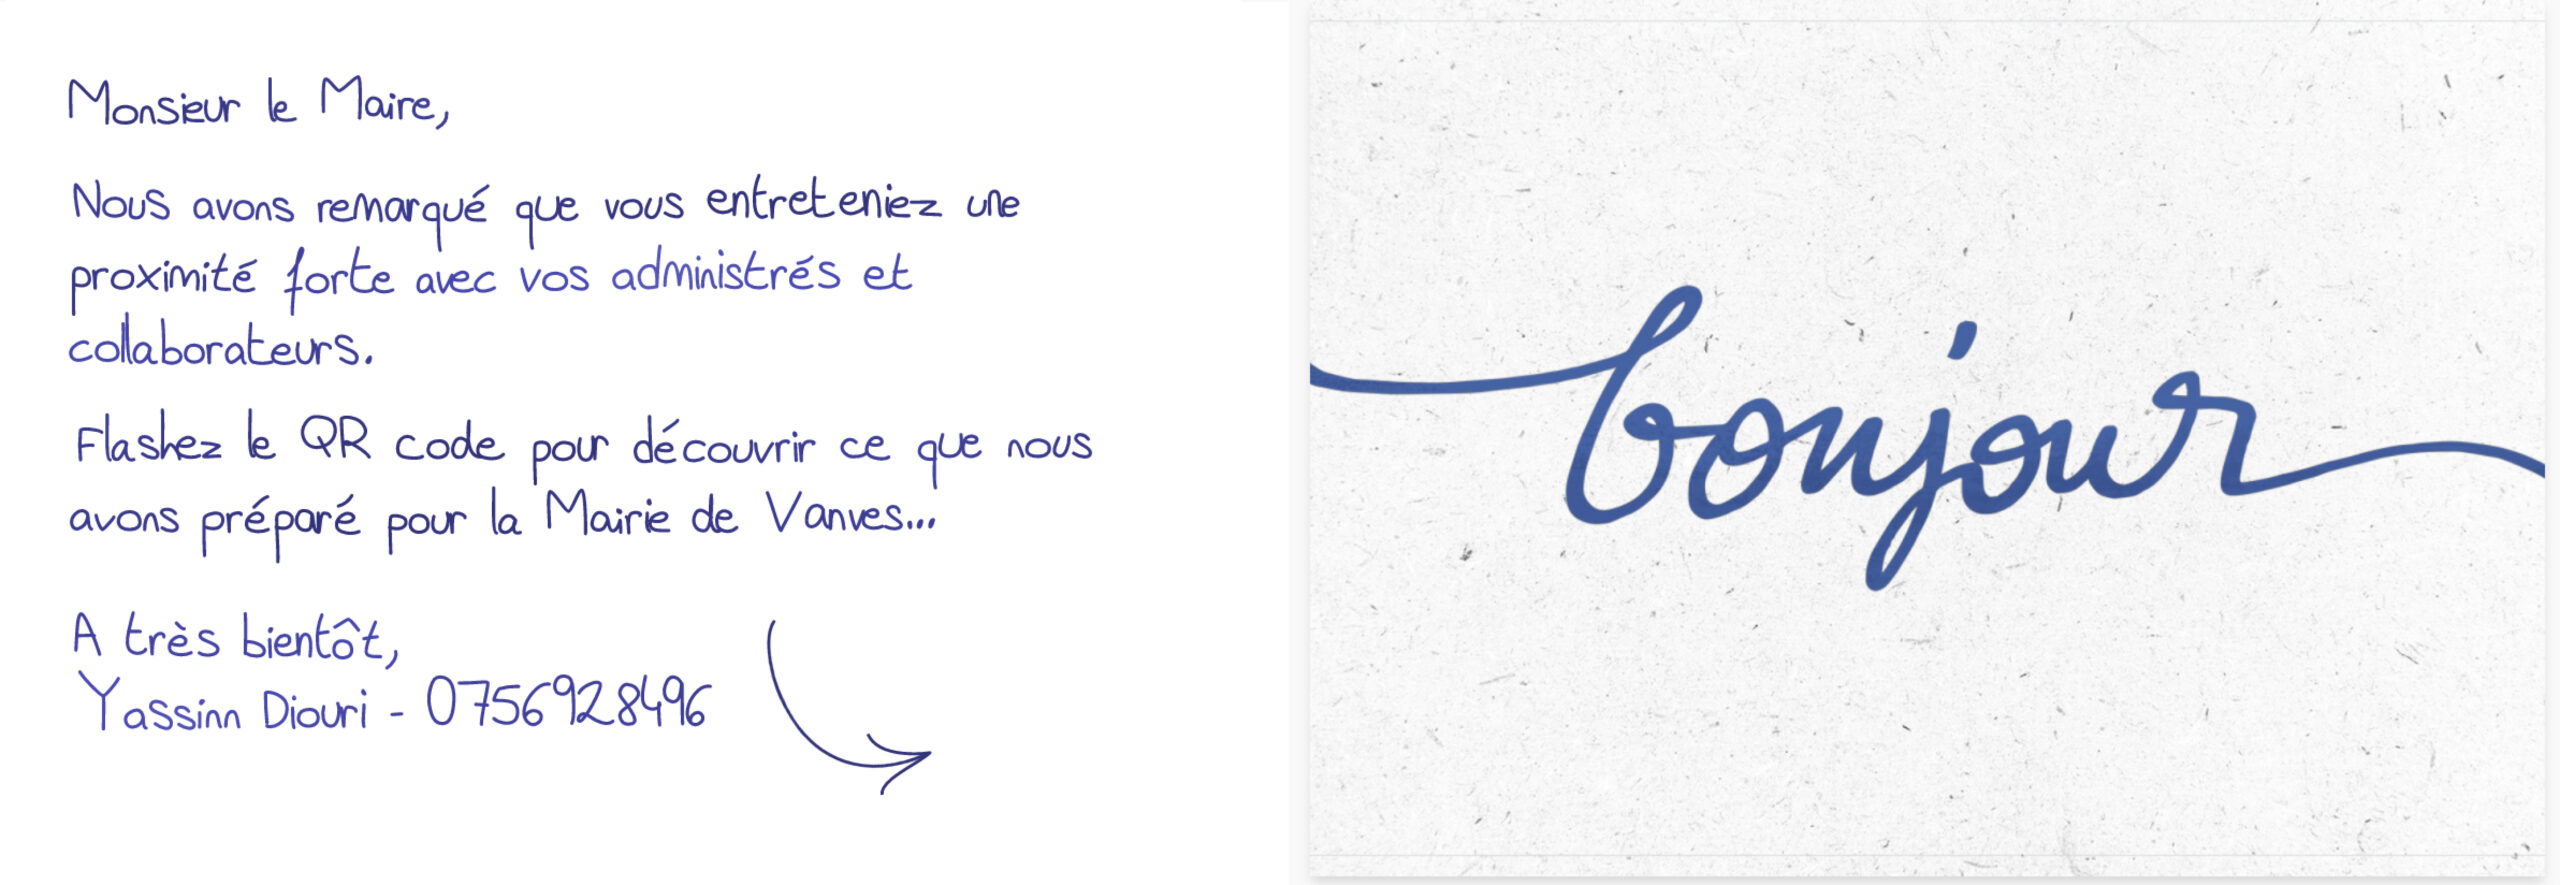 Monsieur le Maire,
Nous avons remarqué que vous entreteniez une
proximité forte avec vos administrés et
collaborateurs.
Flashez le QR code pour découvrir ce que nous
avons préparé pour la Mairie de Vanves...
A très bientôt,
Yassinn Diouri - 0756928496
bonjour